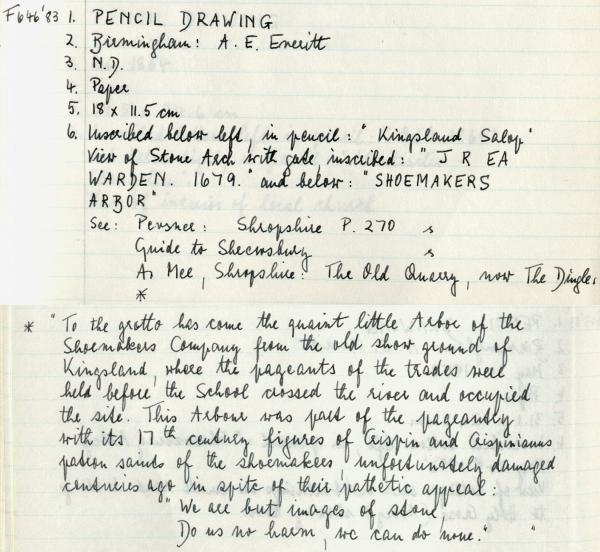 F646'83 1. PENCIL DRAWING
2. Birmingham: A. E. Everitt
3. N.D.
4. Paper
5. 18 x 11.5 cm
6. Inscribed below left, in pencil: "Kingsland Salop'
View of Stone Arch with gate, inscribed: "J R EA
WARDEN. 1679." and below: "SHOEMAKERS
ARBOR"
See: Pevsner: Shropshire P. 270 s
Guide to Shrewsbury s
A. Mee, Shropshire: The Old Quarry, now The Dingle.
*
* "To the grotto has come the quaint little Arbor of the
Shoemakers Company from the old show ground of
Kingsland, where the pageants of the trades were
held before the School crossed the river and occupied
the site. This Arbour was part of the pageantry
with its 17th century figures of Crispin and Crispinianus
patron saints of the shoemakers, unfortunately damaged
centuries ago in spite of their pathetic appeal:
"We are but images of stone,
Do us no harm, we can do none." "